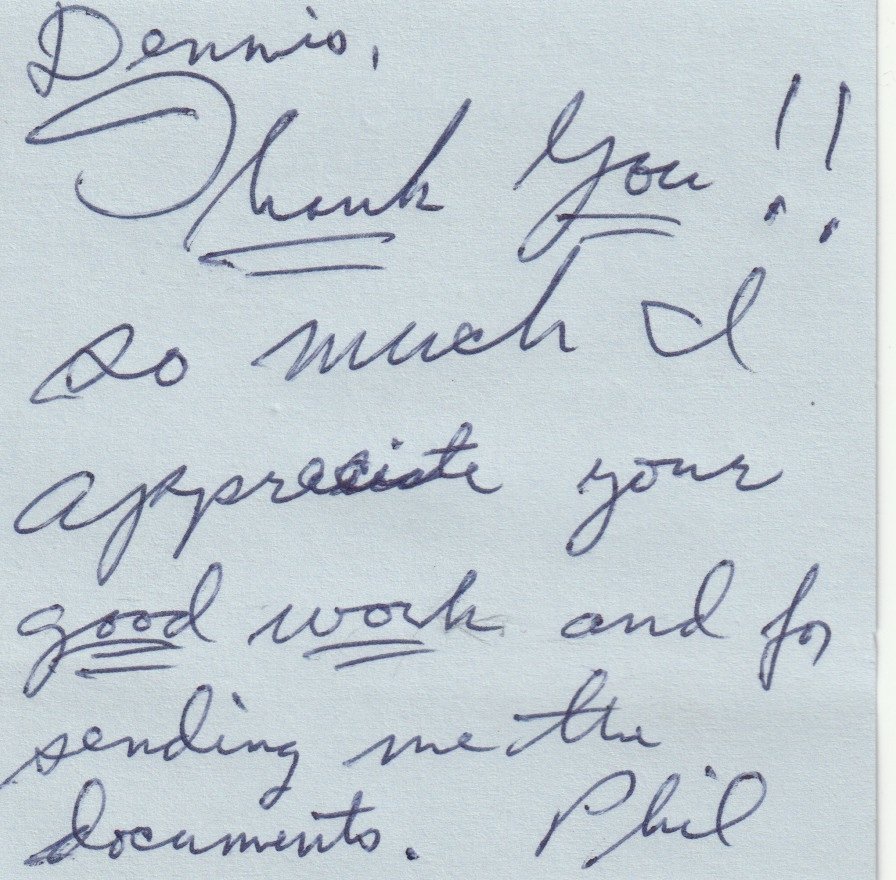 Dennis,
Thank You!!
so much I
appreciate your
good work and for
sending me the
documents. Phil